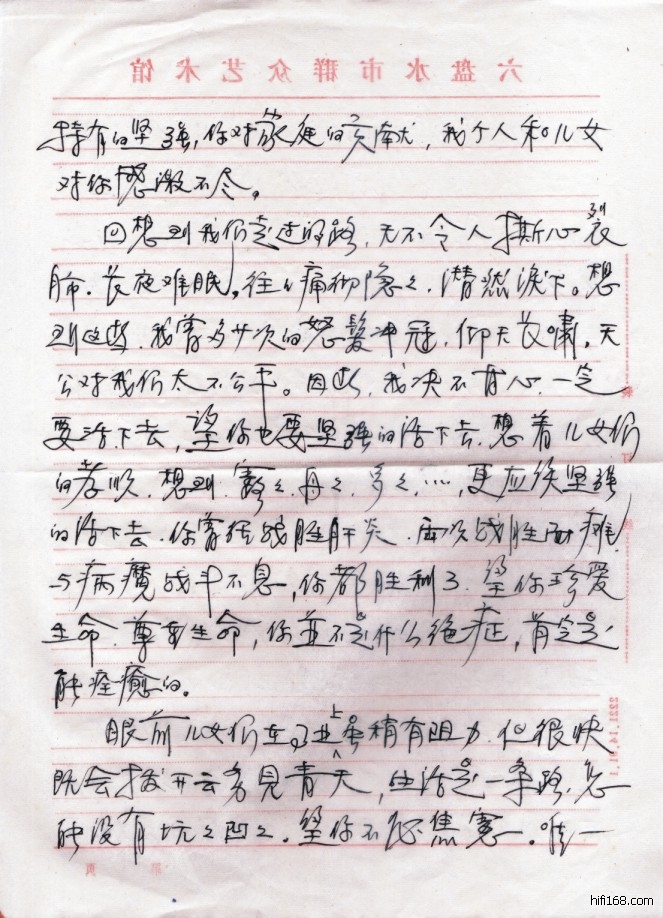 六盘水市群众艺术馆
持有的坚强，你对家庭的贡献，我个人和儿女
对你感激不尽。
回想到我们走过的路，无不令人撕心裂
肺，长夜难眠，往々痛彻隐々，潸然淚下。想
到这些，我曾多少次的怒髮冲冠，仰天长啸，天
公对我们太不公平。因此，我决不甘心，一定
要活下去，望你也要坚强的活下去，想着儿女们
的孝顺，想到，骞々、丹々、多々、…，更应该坚强
的活下去，你曾经战胜肝炎，两次战胜面瘫，
与病魔战斗不息，你都胜利了。望你珍爱
生命，尊重生命，你並不是什么绝症，肯定是
能痊癒的。
眼前儿女们在事业上虽稍有阻力，但很快
既会拨开云雾见青天，生活是一条路，怎
能没有坑々凹々，望你不必焦急。唯一
2221.14.01.1
页
hifi168.com